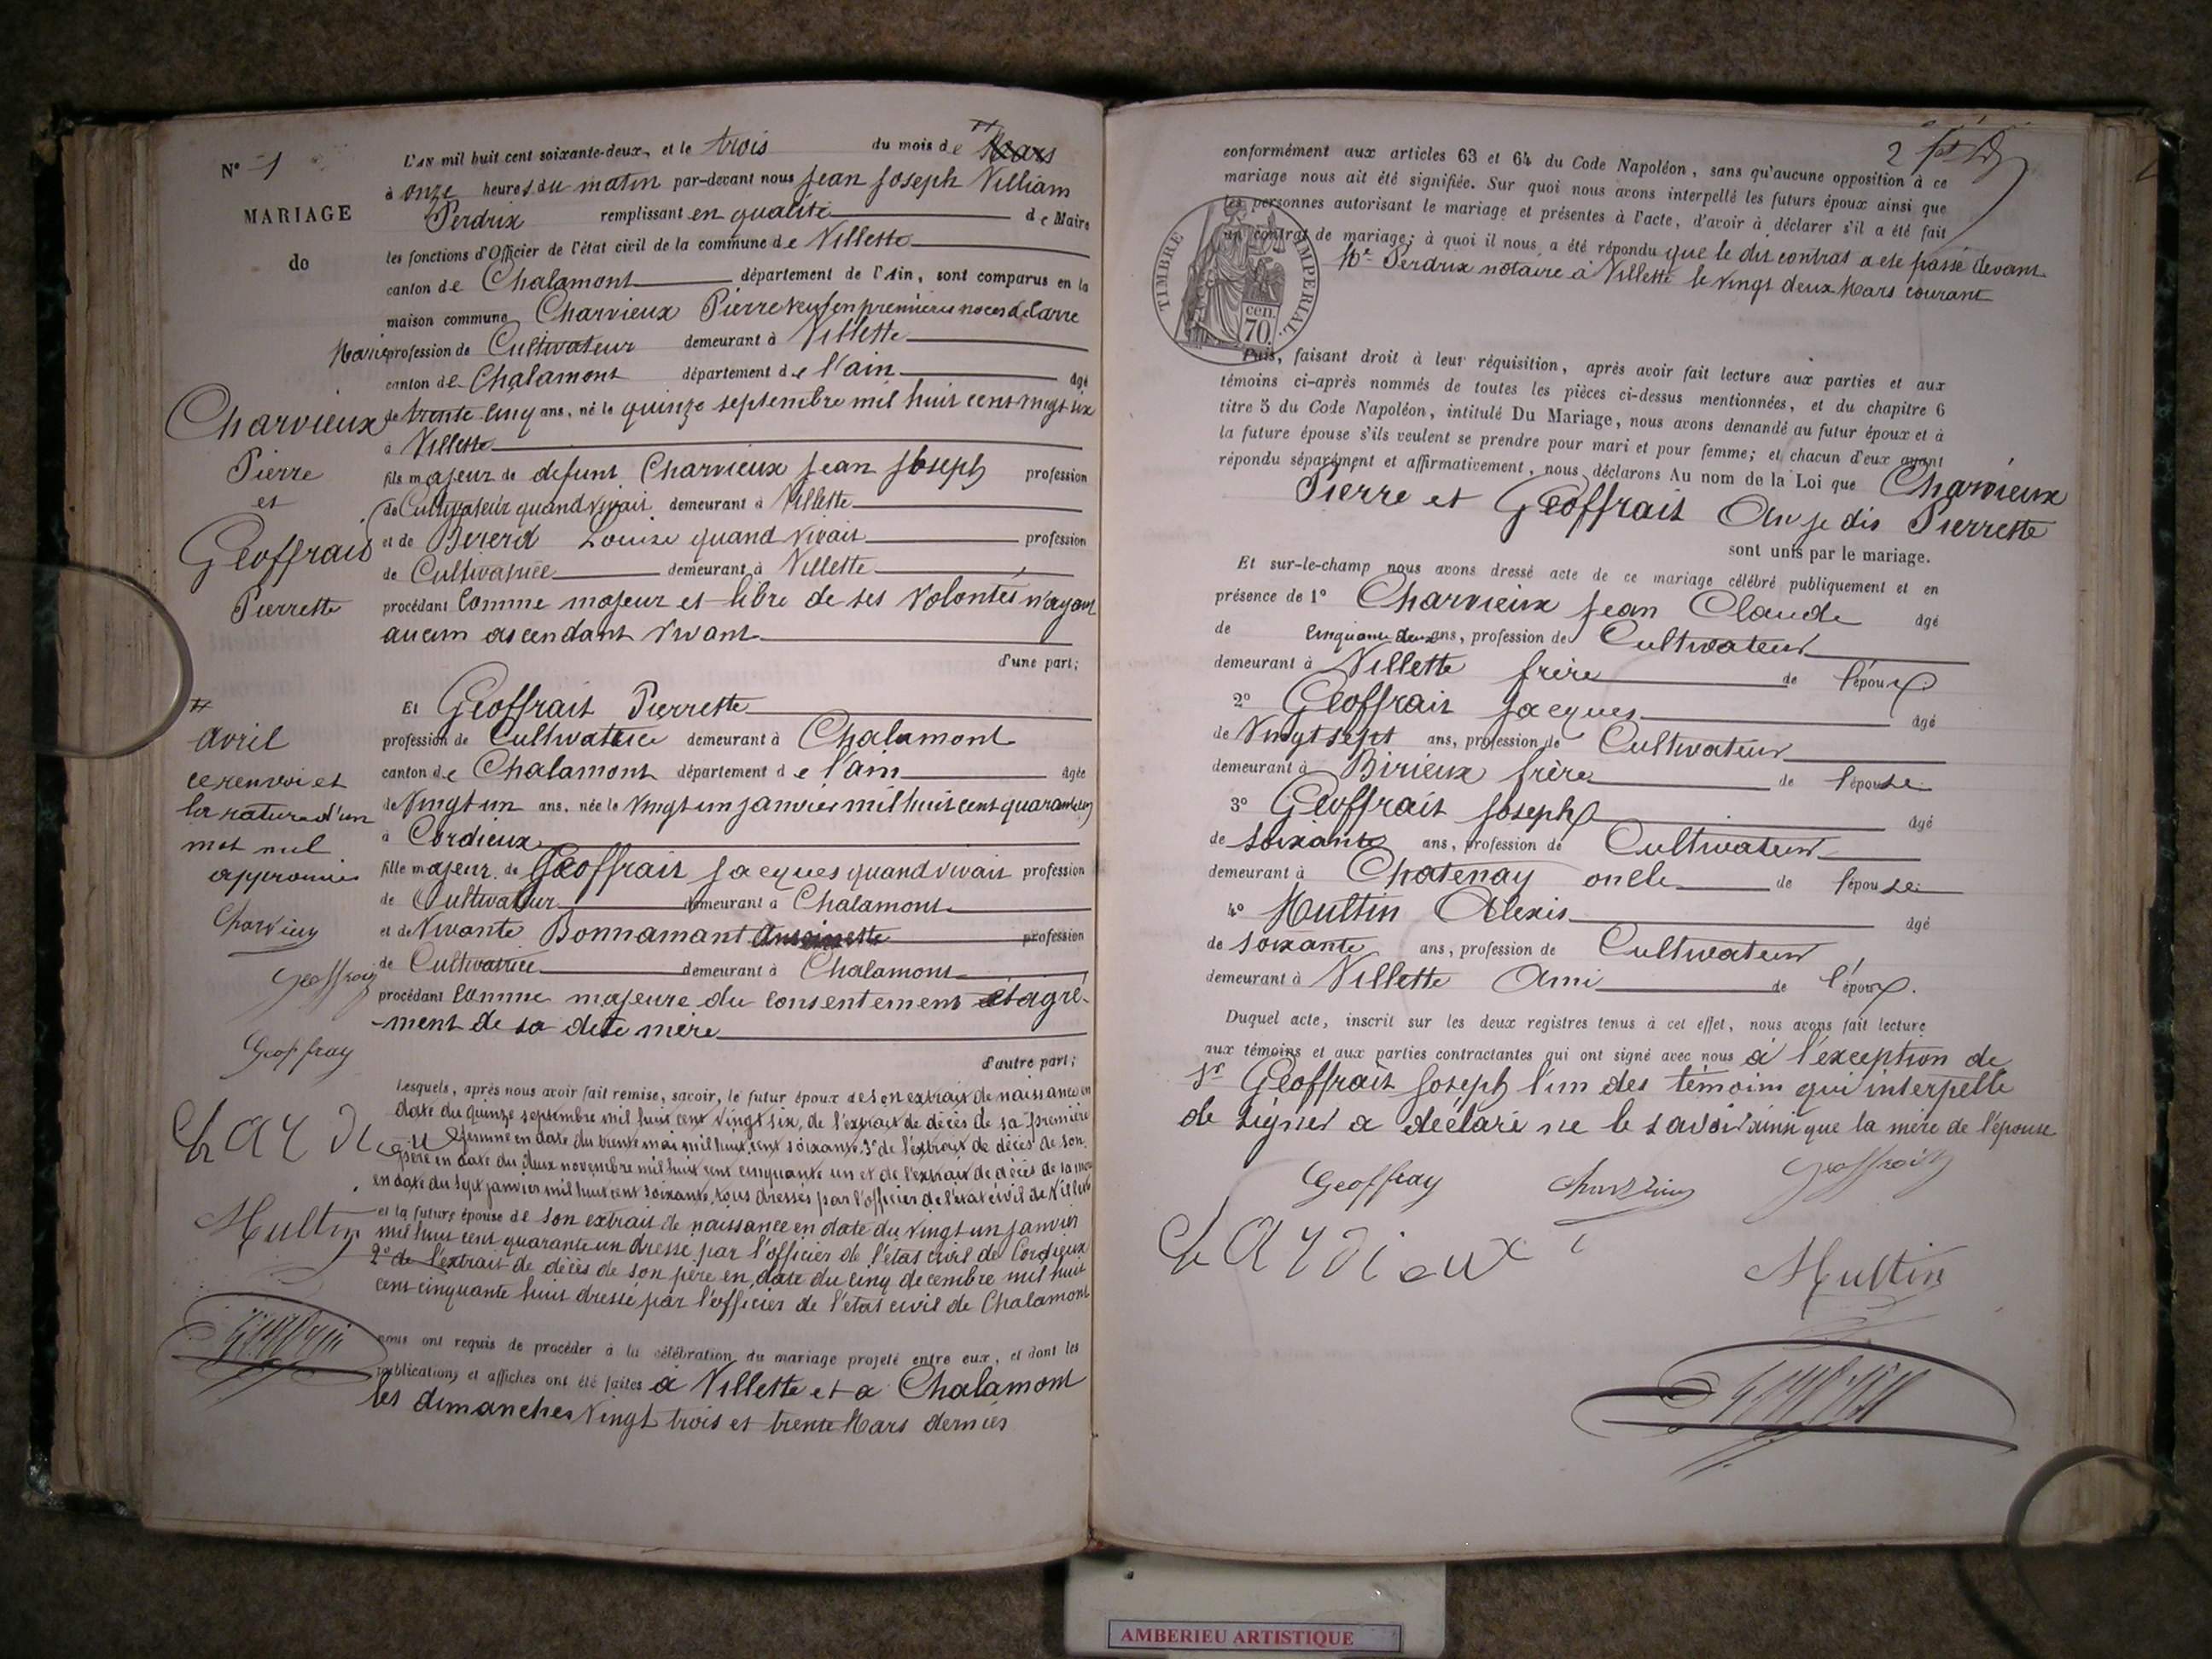 N° 1
MARIAGE
de
Charvieux
Pierre
et
Geoffrais
Pierrette
#
avril
ce renvoi et
la rature d'un
mot nul
approuvés
Charvieux
Geoffray
Geoffray
Charvieux
Multin
L'AN mil huit cent soixante-deux, et le trois du mois de # Mars
à onze heures du matin par-devant nous Jean Joseph Villiam
Perdrix remplissant en qualité de Maire
les fonctions d'Officier de l'état civil de la commune de Villette
canton de Chalamont département de l'Ain, sont comparus en la
maison commune Charvieux Pierre veuf en premières noces de Carre
Marie profession de Cultivateur demeurant à Villette
canton de Chalamont département de l'ain âgé
de trente cinq ans, né le quinze septembre mil huit cent vingt six
à Villette
fils majeur de defunt Charvieux Jean Joseph profession
de Cultivateur quand vivait demeurant à Villette
et de Bererd Louise quand vivait profession
de Cultivatrice demeurant à Villette
procédant Comme majeur et libre de ses volontés n'ayant
aucun ascendant vivant
d'une part;
Et Geoffrait Pierrette
profession de Cultivatrice demeurant à Chalamont
canton de Chalamont département de l'ain âgée
de Vingt un ans, née le Vingt un janvier mil huit cent quarante un
à Cordieux
fille majeur. de Geoffrait Jacques quand vivait profession
de Cultivateur demeurant à Chalamont
et de Vivante Bonnamant Antoinette profession
de Cultivatrice demeurant à Chalamont
procédant Comme majeure du consentement et agré-
-ment de sa dite mère
d'autre part;
Lesquels, après nous avoir fait remise, savoir, le futur époux de son extrait de naissance en
date du quinze septembre mil huit cent vingt six, de l'extrait de décès de sa première
femme en date du trente mai mil huit cent soixante. 3° de l'extrait de décès de son
père en date du deux novembre mil huit cent cinquante un et de l'extrait de décès de sa mère
en date du sept janvier mil huit cent soixante, tous dressés par l'officier de l'état civil de Villette
et la future épouse de son extrait de naissance en date du vingt un janvier
mil huit cent quarante un dressé par l'officier de l'état civil de Cordieux
2° de l'extrait de décès de son père en date du cinq decembre mil huit
cent cinquante huit dressé par l'officier de l'état civil de Chalamont
nous ont requis de procéder à la célébration du mariage projeté entre eux, et dont les
publications et affiches ont été faites à Villette et a Chalamont
les dimanches vingt trois et trente Mars dernier
2
conformément aux articles 63 et 64 du Code Napoléon, sans qu'aucune opposition à ce
mariage nous ait été signifiée. Sur quoi nous avons interpellé les futurs époux ainsi que
les personnes autorisant le mariage et présentes à l'acte, d'avoir à déclarer s'il a été fait
un contrat de mariage; à quoi il nous a été répondu que le dit contrat a ete passé devant
Me Perdrix notaire à Villette le vingt deux Mars courant
TIMBRE IMPERIAL.
70 cen.
Puis, faisant droit à leur réquisition, après avoir fait lecture aux parties et aux
témoins ci-après nommés de toutes les pièces ci-dessus mentionnées, et du chapitre 6
titre 5 du Code Napoléon, intitulé Du Mariage, nous avons demandé au futur époux et à
la future épouse s'ils veulent se prendre pour mari et pour femme; et, chacun d'eux ayant
répondu séparément et affirmativement, nous déclarons Au nom de la Loi que Charvieux
Pierre et Geoffrait An je dis Pierrette
sont unis par le mariage.
Et sur-le-champ nous avons dressé acte de ce mariage célébré publiquement et en
présence de 1° Charvieux Jean Claude âgé
de Cinquante deux ans, profession de Cultivateur
demeurant à Villette frère de l'époux
2° Geoffrait Jacques âgé
de Vingt sept ans, profession de Cultivateur
demeurant à Birieux frère de l'épouse
3° Geoffrait Joseph âgé
de soixante ans, profession de Cultivateur
demeurant à Chatenay oncle de l'épouse
4° Multin Alexis âgé
de soixante ans, profession de Cultivateur
demeurant à Villette Ami de l'époux.
Duquel acte, inscrit sur les deux registres tenus à cet effet, nous avons fait lecture
aux témoins et aux parties contractantes qui ont signé avec nous à l'exception de
Geoffrait Joseph l'un des témoins qui interpellé
de signer a déclaré ne le savoir ainsi que la mère de l'épouse
Geoffray Charvieux Geoffrait
Charvieux
Multin
AMBERIEU ARTISTIQUE